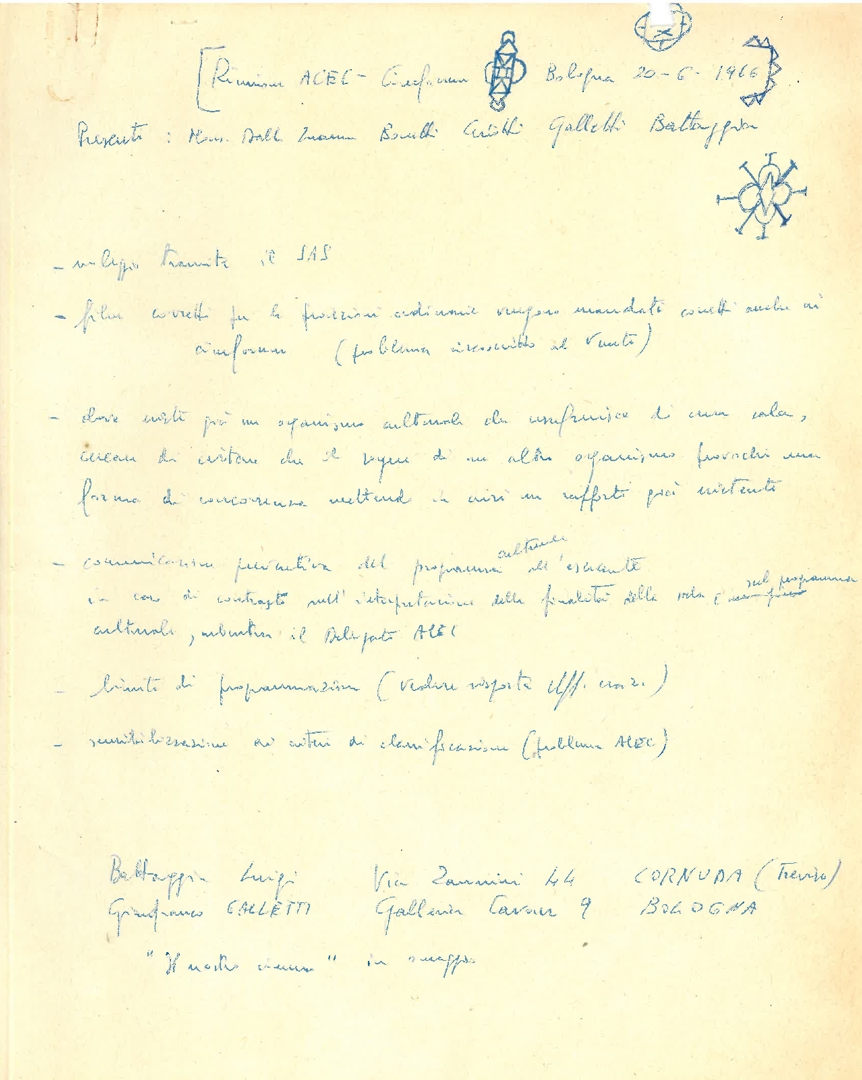 Riunione ACEC - Cineforum Bologna 20-6-1966
Presenti : Mons. Dall Zuanna Bonetti Galletti Battaggia
- noleggio tramite il SAS
- film corretti per le proiezioni ordinarie vengono mandati corretti anche ai
cineforum (problema circoscritto al Veneto)
- dove esiste già un organismo culturale che usufruisce di una sala,
cercare di evitare che il sorgere di un altro organismo provochi una
forma di concorrenza mettendo in crisi un rapporto già esistente
- comunicazione preventiva del programma culturale all'esercente
in caso di contrasto sull'interpretazione delle finalità della sala e sul programma
culturale, subentra il Delegato ACEC
- limiti di programmazione (vedere risposta
- sensibilizzazione ai criteri di classificazione (problema ACEC)
Battaggia Luigi Via Zannini 44 CORNUDA (Treviso)
Gianfranco GALLETTI Galleria Cavour 9 BOLOGNA
"Il nostro cinema" in omaggio